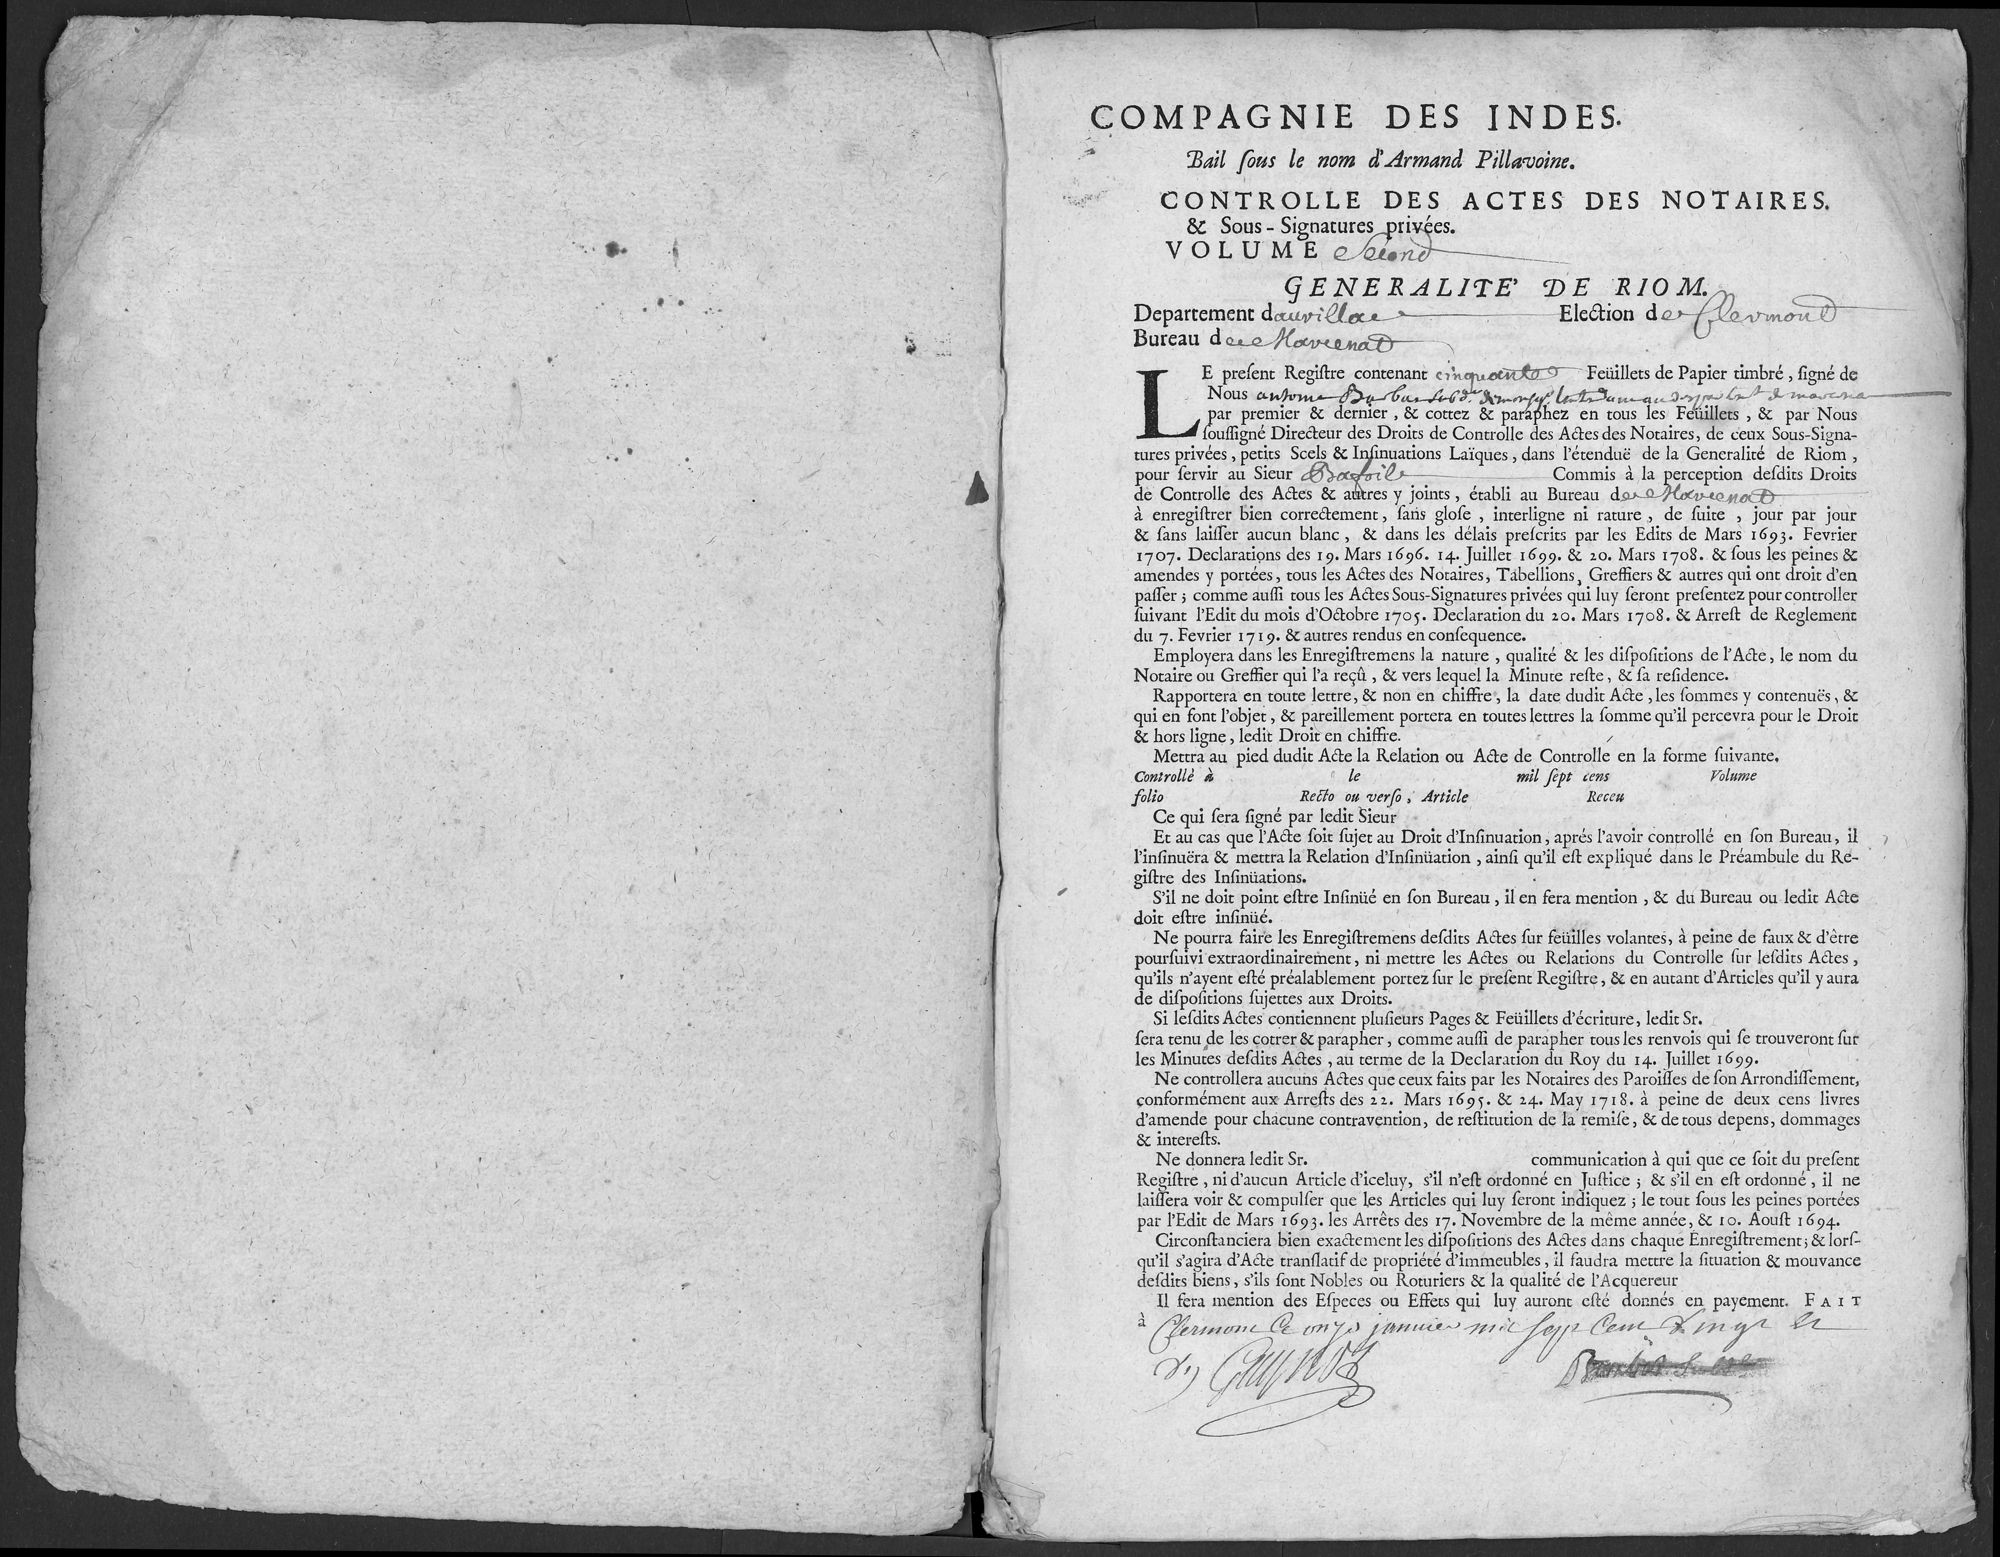 COMPAGNIE DES INDES.
Bail ſous le nom d'Armand Pillavoine.
CONTROLLE DES ACTES DES NOTAIRES.
& Sous-Signatures privées.
VOLUME Second
GENERALITE' DE RIOM.
Departement d Election de Clermont
Bureau de
LE preſent Regiſtre contenant cinquante Feüillets de Papier timbré, ſigné de
Nous
par premier & dernier, & cottez & paraphez en tous les Feüillets, & par Nous
ſouſſigné Directeur des Droits de Controlle des Actes des Notaires, de ceux Sous-Signa-
tures privées, petits Scels & Inſinuations Laïques, dans l'étenduë de la Generalité de Riom,
pour ſervir au Sieur Commis à la perception deſdits Droits
de Controlle des Actes & autres y joints, établi au Bureau de
à enregiſtrer bien correctement, ſans gloſe, interligne ni rature, de ſuite, jour par jour
& ſans laiſſer aucun blanc, & dans les délais preſcrits par les Edits de Mars 1693. Fevrier
1707. Declarations des 19. Mars 1696. 14. Juillet 1699. & 20. Mars 1708. & ſous les peines &
amendes y portées, tous les Actes des Notaires, Tabellions, Greffiers & autres qui ont droit d'en
paſſer; comme auſſi tous les Actes Sous-Signatures privées qui luy ſeront preſentez pour controller
ſuivant l'Edit du mois d'Octobre 1705. Declaration du 20. Mars 1708. & Arreſt de Reglement
du 7. Fevrier 1719. & autres rendus en conſequence.
Employera dans les Enregiſtremens la nature, qualité & les diſpoſitions de l'Acte, le nom du
Notaire ou Greffier qui l'a reçû, & vers lequel la Minute reſte, & ſa reſidence.
Rapportera en toute lettre, & non en chiffre, la date dudit Acte, les ſommes y contenuës, &
qui en font l'objet, & pareillement portera en toutes lettres la ſomme qu'il percevra pour le Droit
& hors ligne, ledit Droit en chiffre.
Mettra au pied dudit Acte la Relation ou Acte de Controllé en la forme ſuivante.
Controllé à le mil ſept cens Volume
folio Recto ou verſo, Article Receu
Ce qui ſera ſigné par ledit Sieur
Et au cas que l'Acte ſoit ſujet au Droit d'Inſinuation, aprés l'avoir controllé en ſon Bureau, il
l'inſinuëra & mettra la Relation d'Inſinüation, ainſi qu'il eſt expliqué dans le Préambule du Re-
giſtre des Inſinüations.
S'il ne doit point eſtre Inſinüé en ſon Bureau, il en fera mention, & du Bureau ou ledit Acte
doit eſtre inſinüé.
Ne pourra faire les Enregiſtremens deſdits Actes ſur feüilles volantes, à peine de faux & d'être
pourſuivi extraordinairement, ni mettre les Actes ou Relations du Controlle ſur leſdits Actes,
qu'ils n'ayent eſté préalablement portez ſur le preſent Regiſtre, & en autant d'Articles qu'il y aura
de diſpoſitions ſujettes aux Droits.
Si leſdits Actes contiennent pluſieurs Pages & Feüillets d'écriture, ledit Sr.
ſera tenu de les cotter & parapher, comme auſſi de parapher tous les renvois qui ſe trouveront ſur
les Minutes deſdits Actes, au terme de la Declaration du Roy du 14. Juillet 1699.
Ne controllera aucuns Actes que ceux faits par les Notaires des Paroiſſes de ſon Arrondiſſement,
conformément aux Arreſts des 22. Mars 1695. & 24. May 1718. à peine de deux cens livres
d'amende pour chacune contravention, de reſtitution de la remiſe, & de tous depens, dommages
& intereſts.
Ne donnera ledit Sr. communication à qui que ce ſoit du preſent
Regiſtre, ni d'aucun Article d'iceluy, s'il n'eſt ordonné en Juſtice; & s'il en eſt ordonné, il ne
laiſſera voir & compulſer que les Articles qui luy ſeront indiquez; le tout ſous les peines portées
par l'Edit de Mars 1693. les Arrêts des 17. Novembre de la même année, & 10. Aouſt 1694.
Circonſtanciera bien exactement les diſpoſitions des Actes dans chaque Enregiſtrement; & lorſ-
qu'il s'agira d'Acte tranſlatif de propriété d'immeubles, il faudra mettre la ſituation & mouvance
deſdits biens, s'ils ſont Nobles ou Roturiers & la qualité de l'Acquereur
Il fera mention des Eſpeces ou Effets qui luy auront eſté donnés en payement. FAIT
à Clermont Ce onze janvier mil sept Cent Vingt